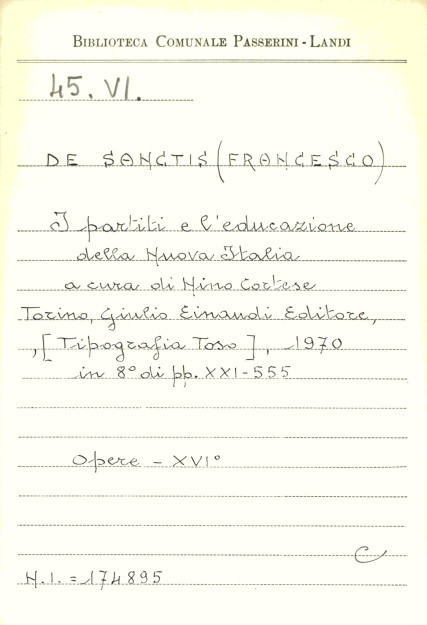 BIBLIOTECA COMUNALE PASSERINI - LANDI
45. VI.
DE SANCTIS (FRANCESCO)
I partiti e l'educazione
della Nuova Italia
a cura di Nino Cortese
Torino, Giulio Einaudi Editore,
,[Tipografia Toso], 1970
in 8° di pp. XXI-555
Opere - XVI°
C
N.I. = 174895